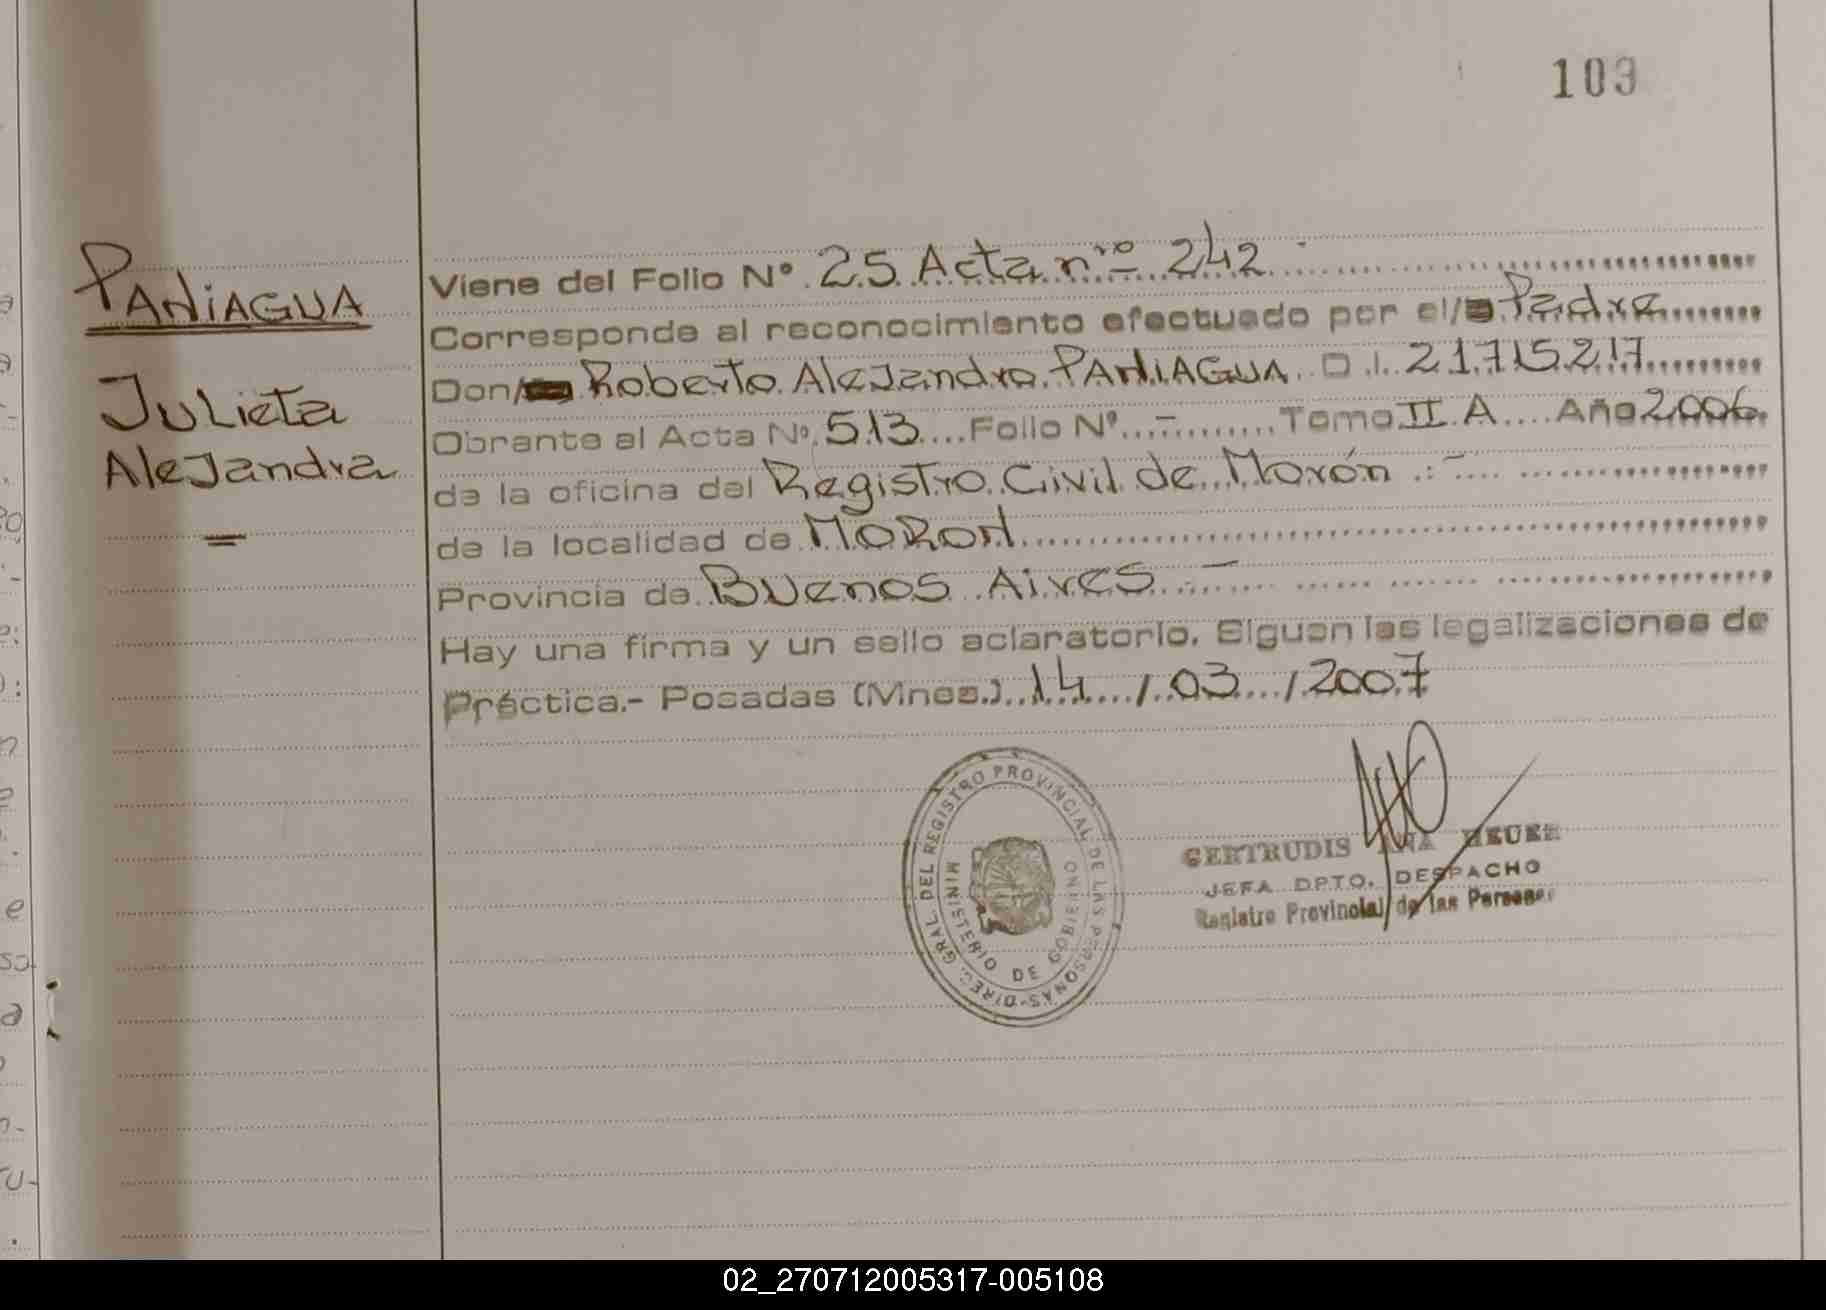 103
PANIAGUA
Julieta
Alejandra
Viene del Folio Nº 25 Acta nº 242
Corresponde al reconocimiento efectuado por el/ Padre
Don/ Roberto Alejandro PANIAGUA D.I. 21.715.217
Obrante al Acta Nº 513 Folio Nº - Tomo II A Año 2006
de la oficina del Registro Civil de Morón
de la localidad de MORON
Provincia de Buenos Aires
Hay una firma y un sello aclaratorio. Siguen las legalizaciones de
Práctica.- Posadas (Mnes.) 14 / 03 / 2007
DIREC. GRAL. DEL REGISTRO PROVINCIAL DE LAS PERSONAS
MINISTERIO DE GOBIERNO
GERTRUDIS ANA HEUER
JEFA DPTO. DESPACHO
Registro Provincial de las Personas
02_270712005317-005108